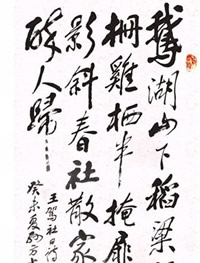 鹅湖山下稻粱
栅鸡栖半掩扉
影斜春社散家
醉人归
王驾社日诗
癸未夏